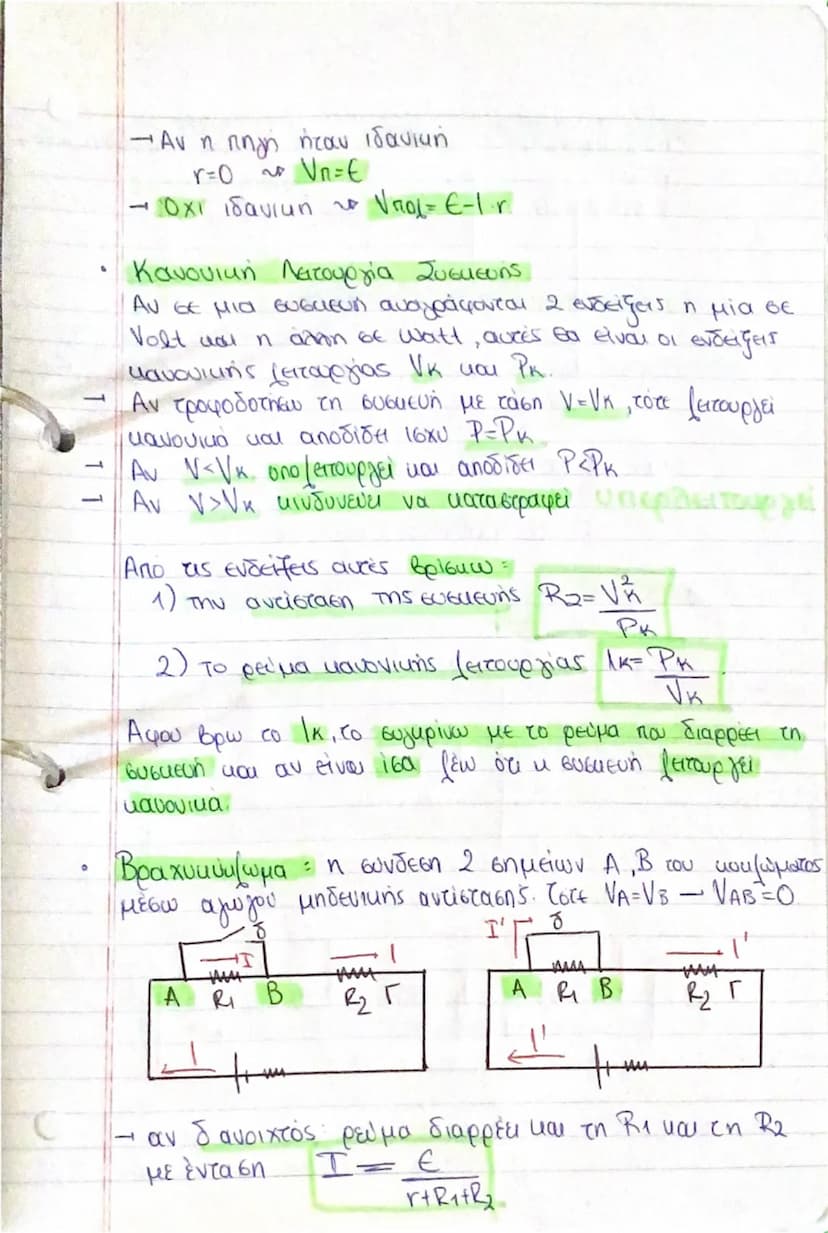 → Αν η πηγή ήταν ιδανική
r=0 ⤳ Vπ=ε
→ Όχι ιδανική ⤳ Vπολ= ε-I·r
• Κανονική Λειτουργία Συσκευής
Αν σε μια συσκευή αναγράφονται 2 ενδείξεις η μία σε
Volt και η άλλη σε Watt, αυτές θα είναι οι ενδείξεις
κανονικής λειτουργίας Vκ και Pκ.
→ Αν τροφοδοτήσω τη συσκευή με τάση V=Vκ, τότε λειτουργεί
κανονικά και αποδίδει ισχύ P=Pκ
→ Αν V<Vκ υπολειτουργεί και αποδίδει P<Pκ
→ Αν V>Vκ κινδυνεύει να καταστραφεί υπερλειτουργεί
Από τις ενδείξεις αυτές βρίσκω:
1) την αντίσταση της συσκευής R₂= Vκ²/Pκ
2) το ρεύμα κανονικής λειτουργίας Iκ= Pκ/Vκ
Αφού βρω το Iκ, το συγκρίνω με το ρεύμα που διαρρέει τη
συσκευή και αν είναι ίσα λέω ότι η συσκευή λειτουργεί
κανονικά.
• Βραχυκύκλωμα: η σύνδεση 2 σημείων Α, Β του κυκλώματος
μέσω αγωγού μηδενικής αντίστασης. Τότε VA=VB — VAB=0
δ I' δ
I I I'
A R₁ B R₂ Γ A R₁ B R₂ Γ
I I'
→ αν δ ανοιχτός: ρεύμα διαρρέει και τη R1 και τη R2
με ένταση I = ε/(r+R₁+R₂)